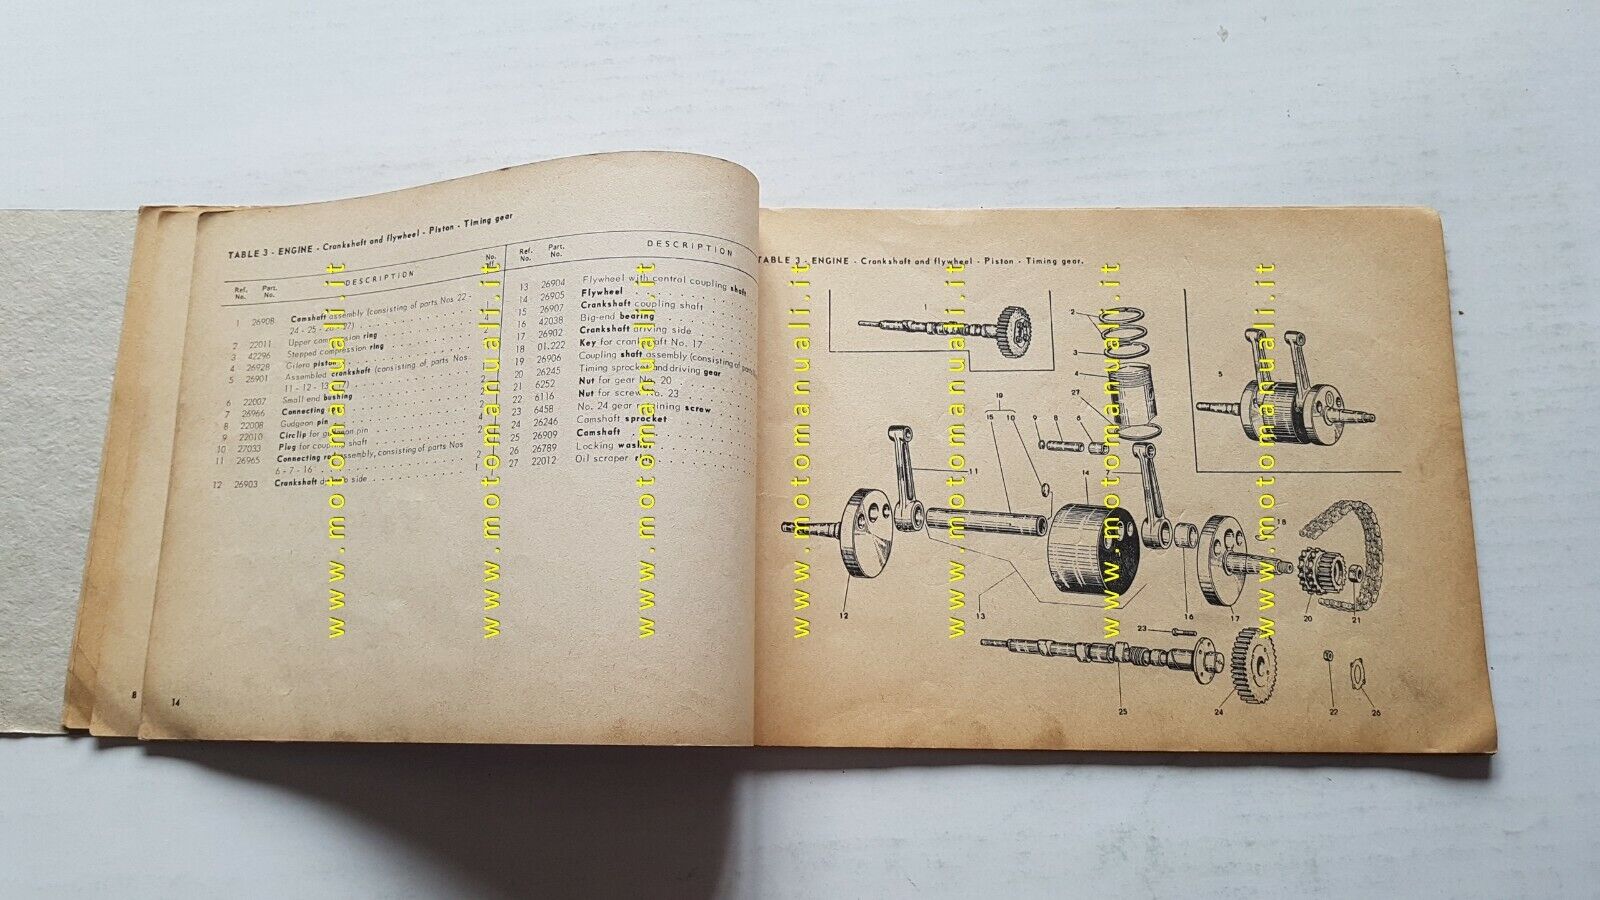 TABLE 3 - ENGINE - Crankshaft and flywheel - Piston - Timing gear
Ref. No. Part. No. DESCRIPTION No. off
1 26908 Camshaft assembly (consisting of parts Nos 22 -
24 - 25 -
2 22011 Upper compression ring
3 42296 Stepped compression ring
4 26928 Gilera piston
5 26901 Assembled crankshaft (consisting of parts Nos
11 - 12 - 13
6 22007 Small end bushing
7 26966 Connecting
8 22008 Gudgeon pin
9 22010 Circlip for gudgeon pin
10 27033 Plug for coupling shaft
11 26965 Connecting rod assembly, consisting of parts Nos
6 - 7 - 16
12 26903 Crankshaft side
Ref. No. Part. No. DESCRIPTION
13 26904 Flywheel with central coupling shaft
14 26905 Flywheel
15 26907 Crankshaft coupling shaft
16 42038 Big-end bearing
17 26902 Crankshaft driving side
18 01.222 Key for crankshaft No. 17
19 26906 Coupling shaft assembly (consisting of parts
20 26245 Timing sprocket and driving gear
21 6252 Nut for gear No. 20
22 6116 Nut for screw No. 23
23 6458 No. 24 gear retaining screw
24 26246 Camshaft sprocket
25 26909 Camshaft
26 26789 Locking washer
27 22012 Oil scraper ring
8
14
TABLE 3 - ENGINE - Crankshaft and flywheel - Piston - Timing gear.
1
2
3
4
5
27
19
15 10 9 8 6
11
14
7
18
12
13
16
17
20
21
23
25
24
22
26
www.motomanuali.it
www.motomanuali.it
www.motomanuali.it
www.motomanuali.it
www.motomanuali.it
www.motomanuali.it